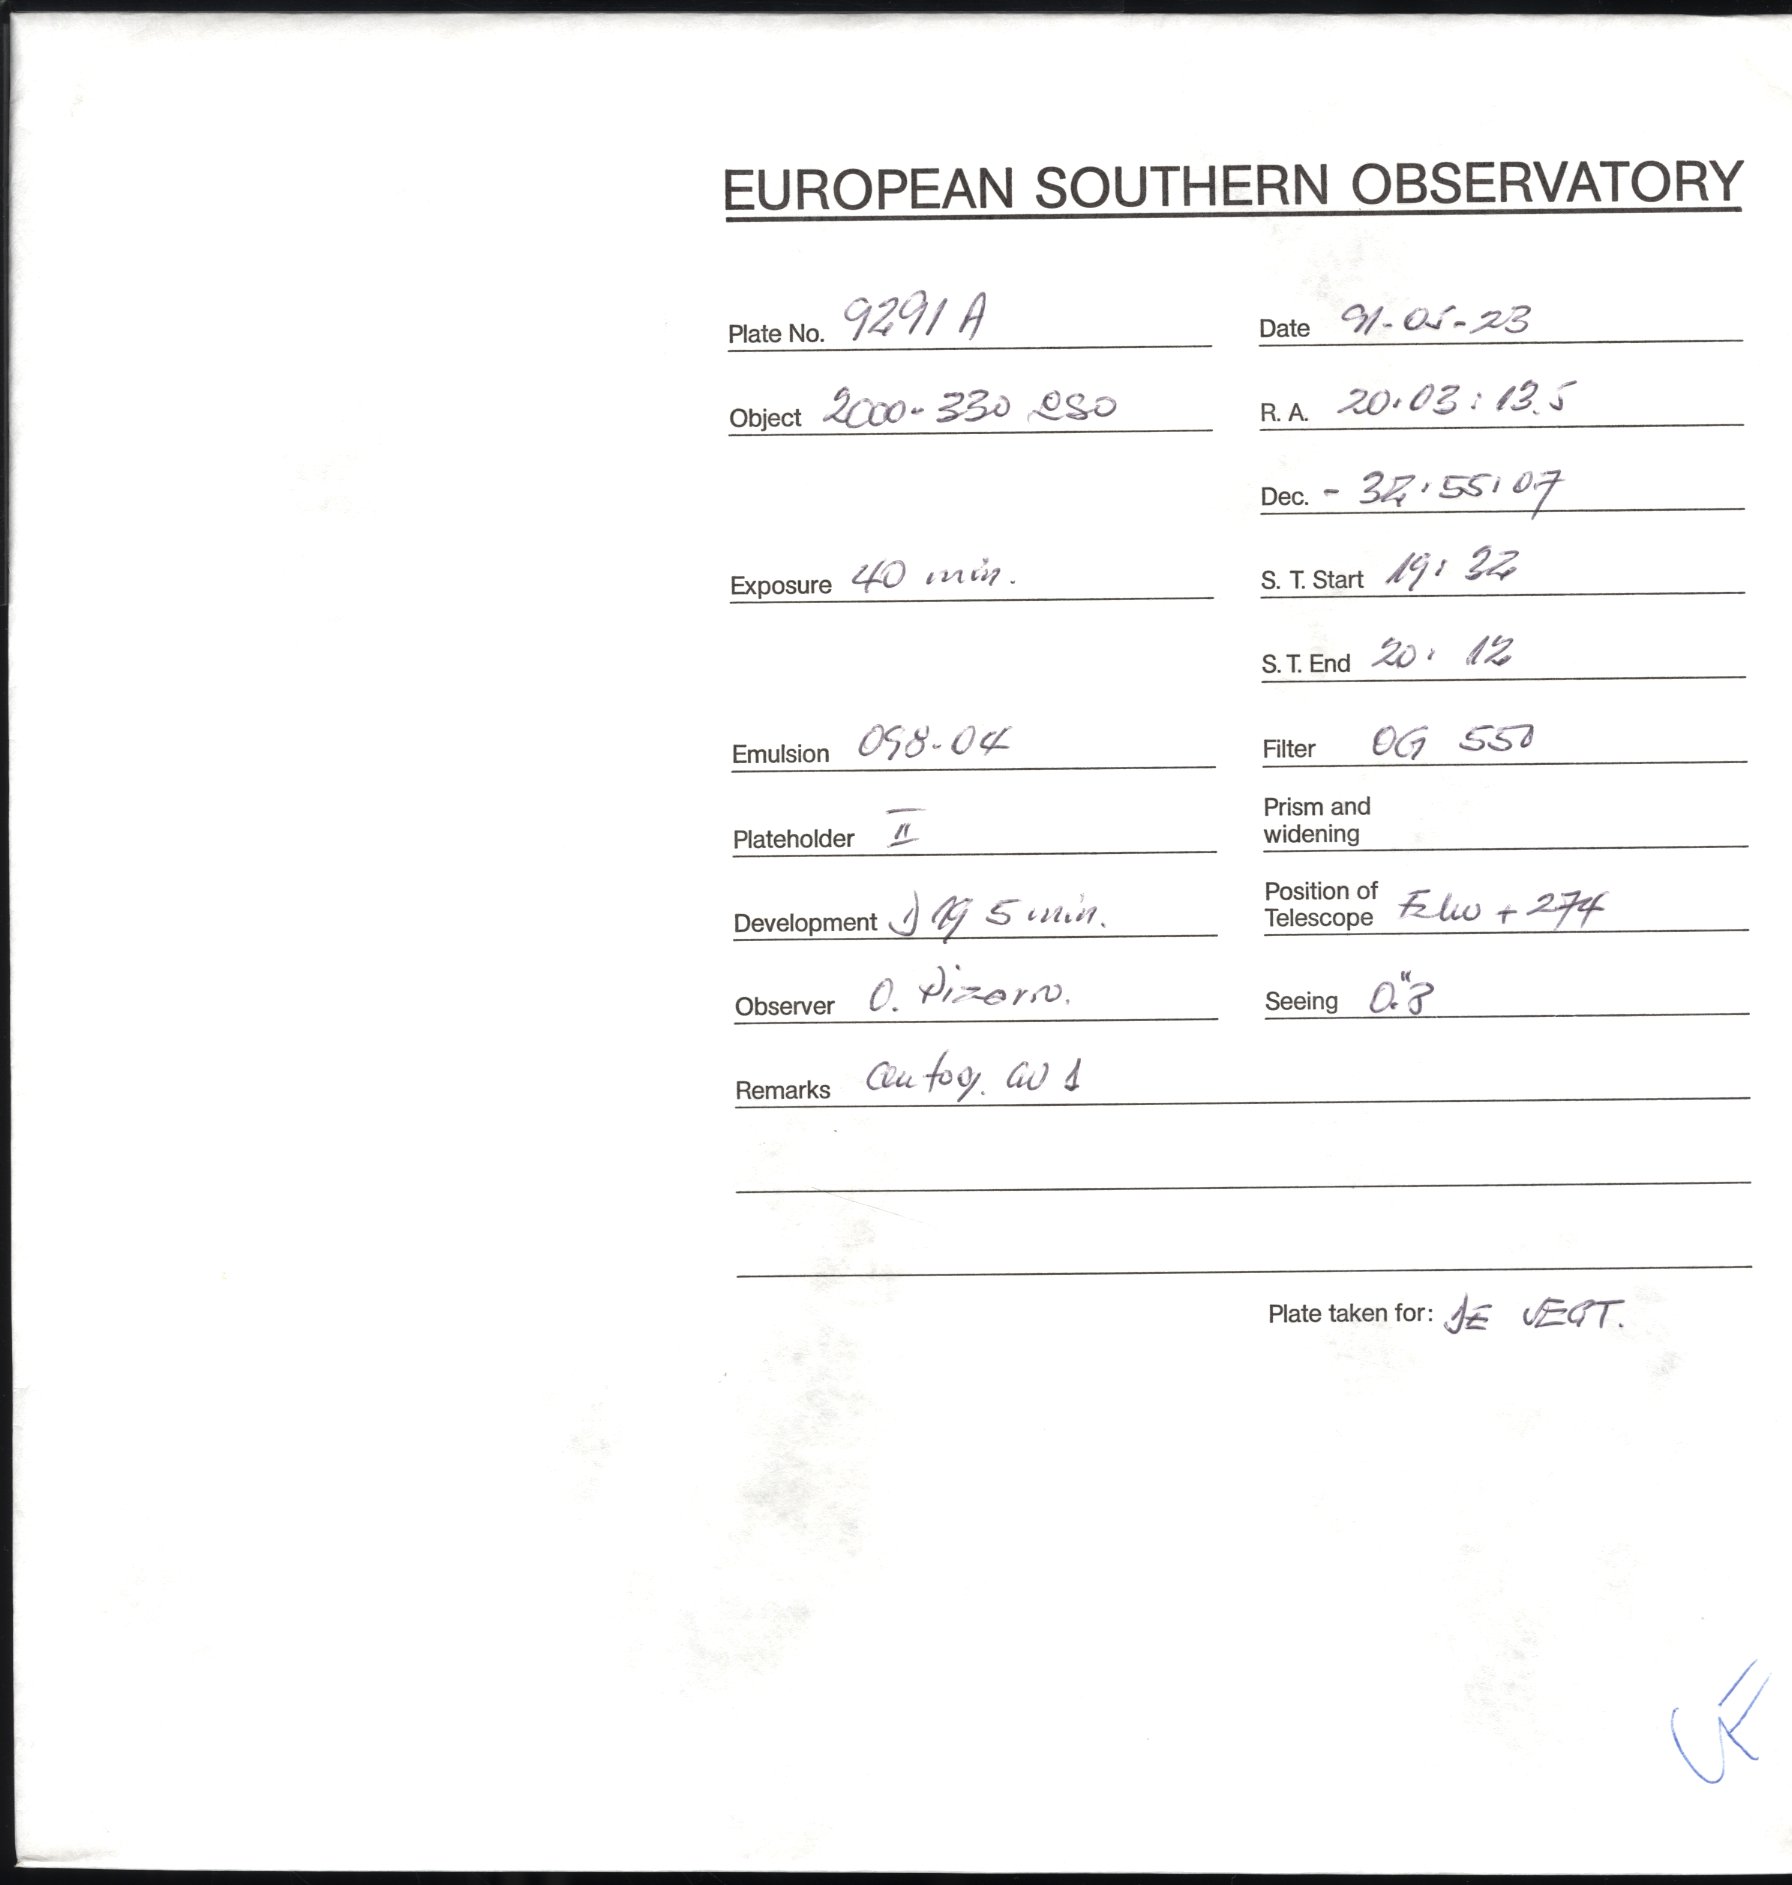 EUROPEAN SOUTHERN OBSERVATORY
Plate No. 9291 A Date 91-05-23
Object 2000-330 QSO R. A. 20:03:13.5
Dec. - 32:55:07
Exposure 40 min. S. T. Start 19: 32
S. T. End 20: 12
Emulsion 098-04 Filter OG 550
Plateholder II Prism and widening
Development D 19 5 min. Position of Telescope + 274
Observer O. Pizarro. Seeing 0."8
Remarks
Plate taken for: DE VEGT.